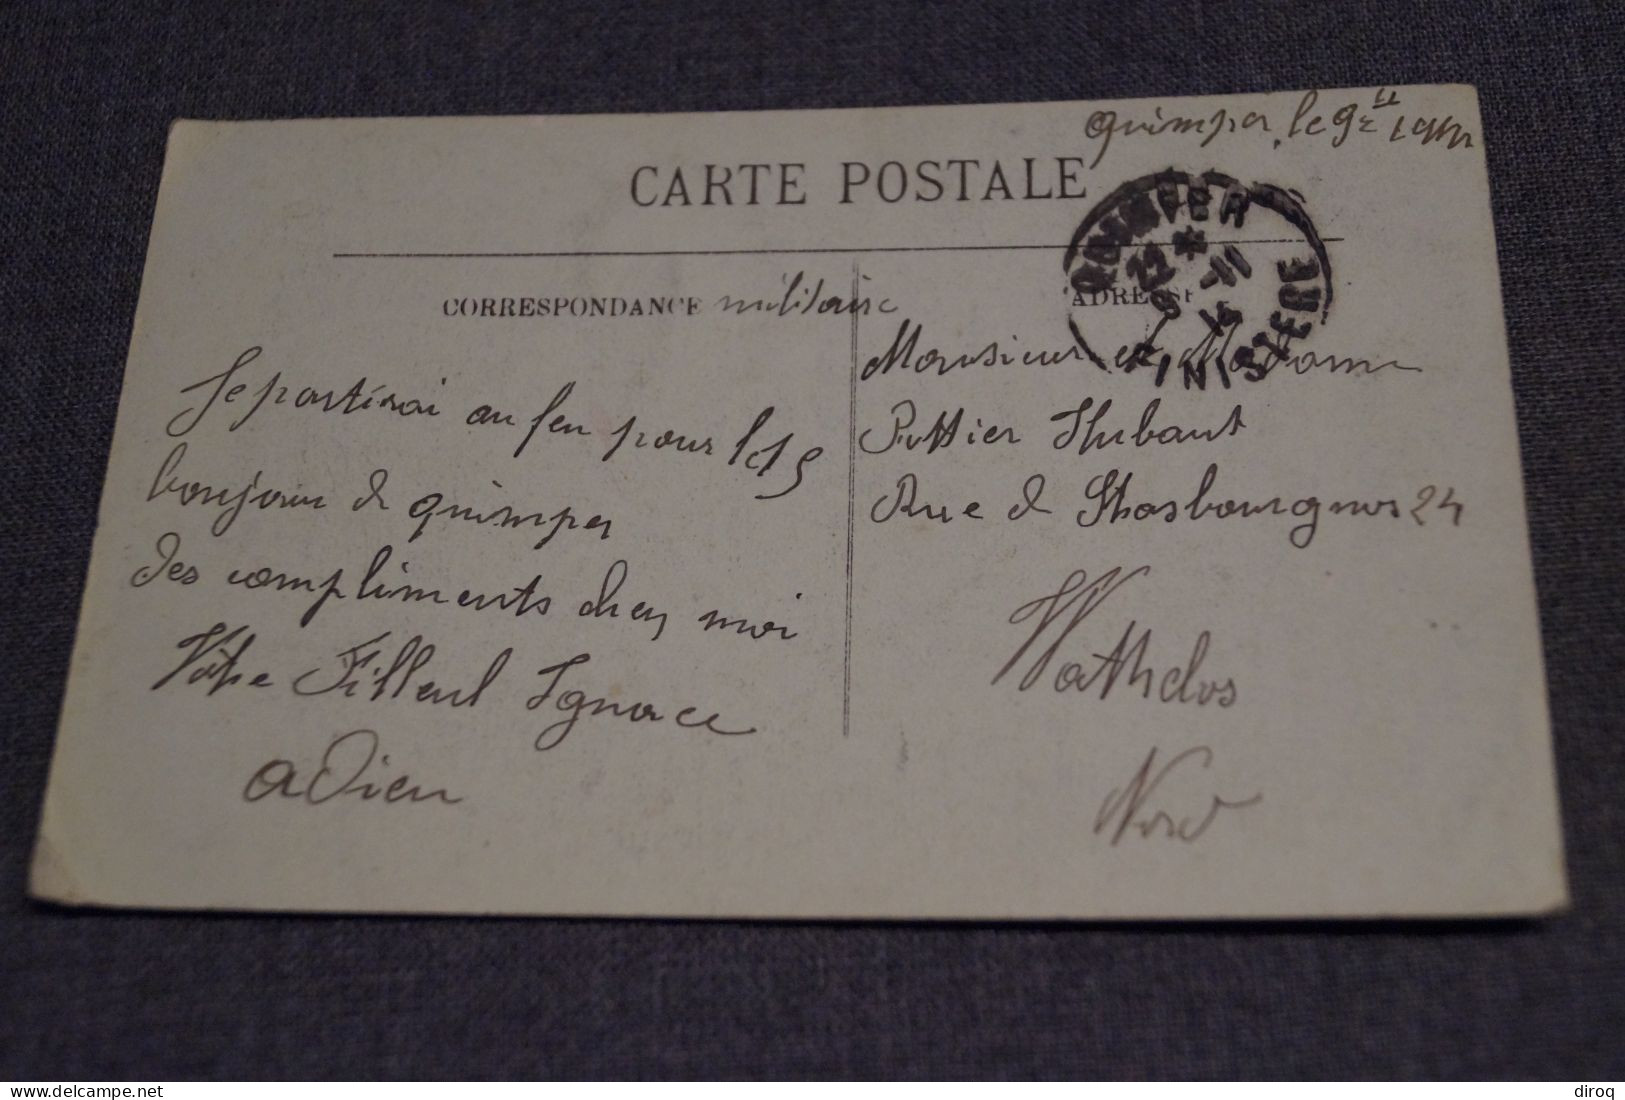 Quimper, le 9
CARTE POSTALE
QUIMPER
22 *
FINISTERE
CORRESPONDANCE militaire
ADRESSE
Je partirai au feu pour le 15
bonjour de quimper
des compliments chez moi
Votre Filleul Ignace
adieu
Monsieur et Madame
Pottier Hubaut
Rue de Strasbourg nos 24
Wathelos
Nord
delcampe.net
diroq